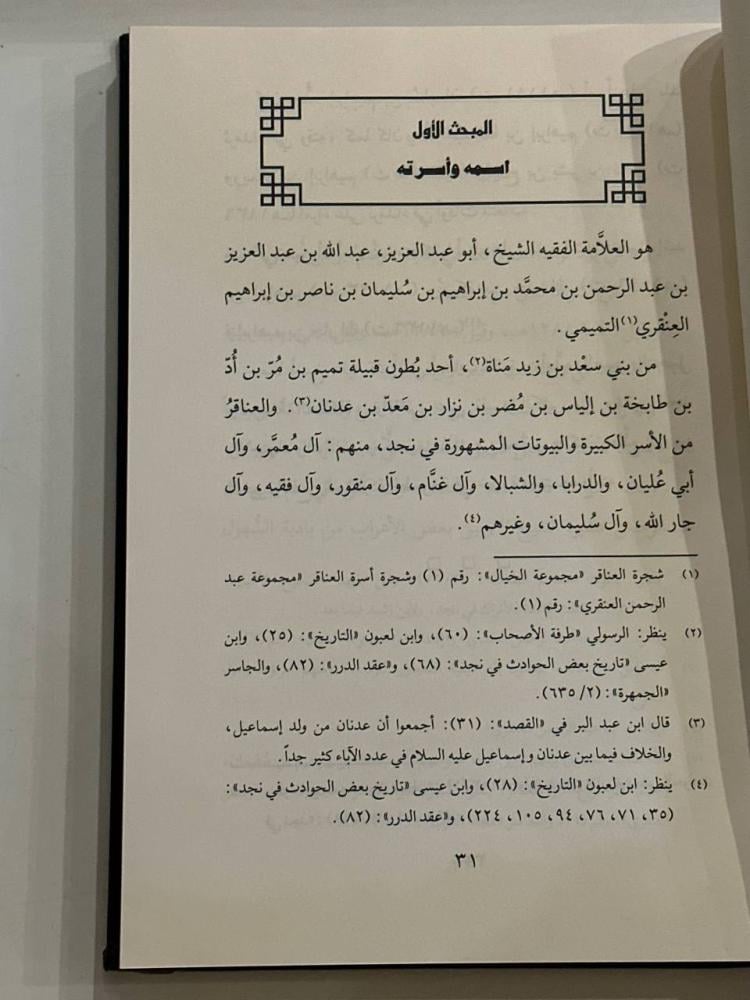 المبحث الأول
اسمه وأسرته
هو العلاَّمة الفقيه الشيخ، أبو عبد العزيز، عبد الله بن عبد العزيز
بن عبد الرحمن بن محمَّد بن إبراهيم بن سُليمان بن ناصر بن إبراهيم
العِنْقري(١) التميمي.
من بني سعْد بن زيد مَناة(٢)، أحد بُطون قبيلة تميم بن مُرّ بن أُدّ
بن طابخة بن إلياس بن مُضر بن نزار بن مَعدّ بن عدنان(٣). والعناقرُ
من الأسر الكبيرة والبيوتات المشهورة في نجد، منهم: آل مُعمَّر، وآل
أبي عُليان، والدرابا، والشبالا، وآل غنَّام، وآل منقور، وآل فقيه، وآل
جار الله، وآل سُليمان، وغيرهم(٤).
(١) شجرة العناقر «مجموعة الخيال»: رقم (١) وشجرة أسرة العناقر «مجموعة عبد
الرحمن العنقري»: رقم (١).
(٢) ينظر: الرسولي «طرفة الأصحاب»: (٦٠)، وابن لعبون «التاريخ»: (٢٥)، وابن
عيسى «تاريخ بعض الحوادث في نجد»: (٦٨)، و«عقد الدرر»: (٨٢)، والجاسر
«الجمهرة»: (٢/ ٦٣٥).
(٣) قال ابن عبد البر في «القصد»: (٣١): أجمعوا أن عدنان من ولد إسماعيل،
والخلاف فيما بين عدنان وإسماعيل عليه السلام في عدد الآباء كثير جداً.
(٤) ينظر: ابن لعبون «التاريخ»: (٢٨)، وابن عيسى «تاريخ بعض الحوادث في نجد»:
(٣٥، ٧١، ٧٦، ٩٤، ١٠٥، ٢٢٤)، و«عقد الدرر»: (٨٢).
٣١